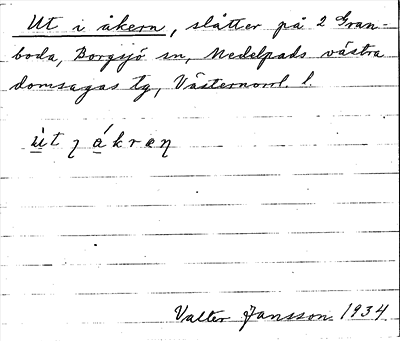 Ut i åkern, slåtter på 2 Gran-
boda, Borgsjö sn, Medelpads västra
domsagas tg, Västernorrl. l.
ùt ɿ ákræn
Valter Jansson 1934